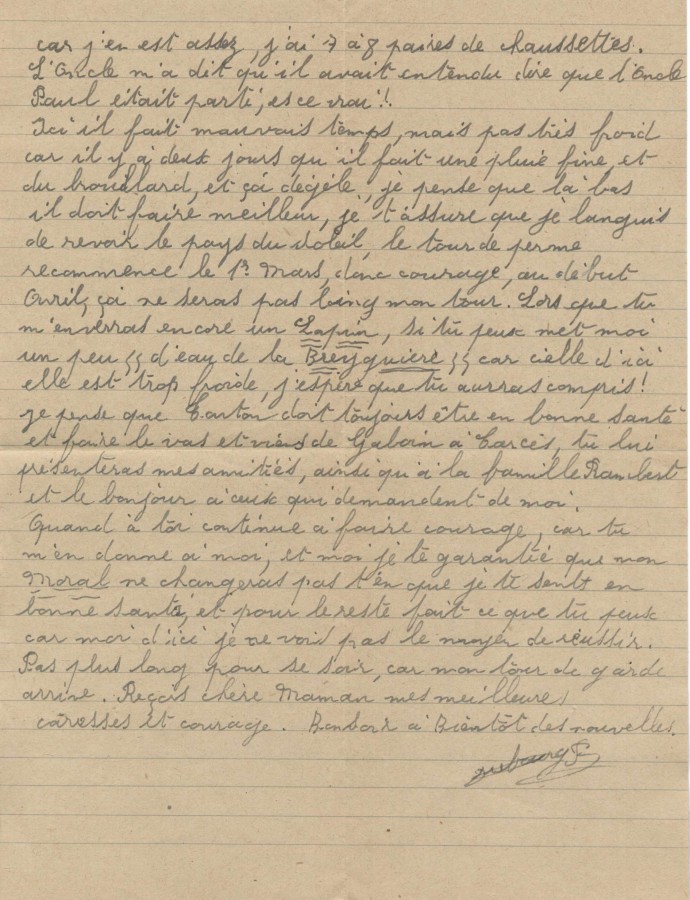 car j'en est assez, j'ai 7 à 8 paires de chaussettes.
L'Oncle m'a dit qu'il avait entendu dire que l'Oncle
Paul était parti, es ce vrai!!
Ici il fait mauvais temps, mais pas très froid
car il y à deux jours qu'il fait une pluie fine, et
du brouillard, et çà dégèle, je pense que là bas
il doit faire meilleur, je t'assure que je languis
de revoir le pays du soleil, le tour de perme
recommence le 1er Mars, donc courage, au début
Avril, çà ne seras pas loing mon tour. Lors que tu
m'enverras encore un Lapin, si tu peux met moi
un peu {{ d'eau de la Breyguière }} car cielle d'ici
elle est trop froide, j'espère que tu aurras compris!
je pense que doit toujours être en bonne santé
et faire le vas et viens de à Carcès, tu lui
présenteras mes amitiés, ainsi qu'à la famille Rambert
et le bonjour à ceux qui demandent de moi.
Quand à toi continue à faire courage, car tu
m'en donne à moi, et moi je te garantie que mon
Moral ne changeras pas t'en que je te sents en
bonne santé, et pour le reste fait ce que tu peux
car moi d'ici je ne void pas le moyen de réussir.
Pas plus long pour se soir, car mon tour de garde
arrive. Reçois chère Maman mes meilleures
caresses et courage. Bonsoir à Bientôt des nouvelles.